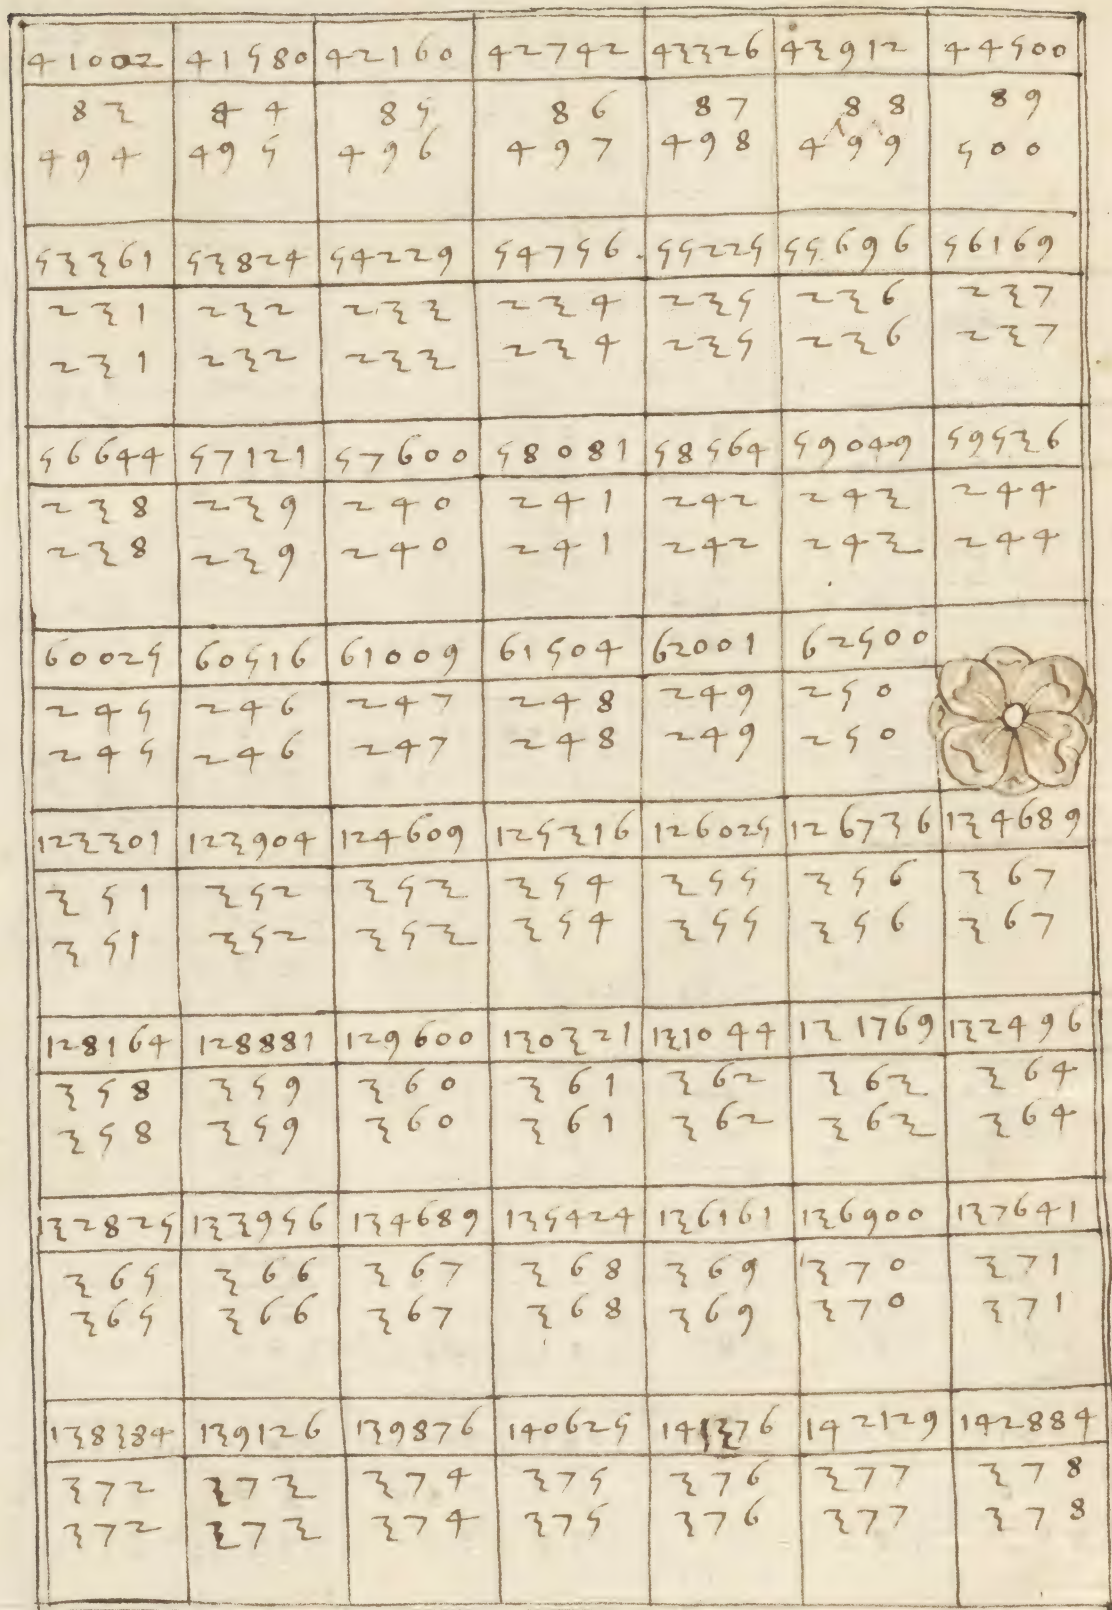 41002 41580 42160 42742 43326 43912 44500
83 84 85 86 87 88 89
494 495 496 497 498 499 500
53361 53824 54229 54756 55225 55696 56169
231 232 233 234 235 236 237
231 232 233 234 235 236 237
56644 57121 57600 58081 58564 59049 59536
238 239 240 241 242 243 244
238 239 240 241 242 243 244
60025 60516 61009 61504 62001 62500
245 246 247 248 249 250
245 246 247 248 249 250
123301 123904 124609 125316 126025 126736 134689
351 352 353 354 355 356 367
351 352 353 354 355 356 367
128164 128881 129600 130321 131044 131769 132496
358 359 360 361 362 363 364
358 359 360 361 362 363 364
132825 133956 134689 135424 136161 136900 137641
365 366 367 368 369 370 371
365 366 367 368 369 370 371
138384 139126 139876 140625 141376 142129 142884
372 373 374 375 376 377 378
372 373 374 375 376 377 378